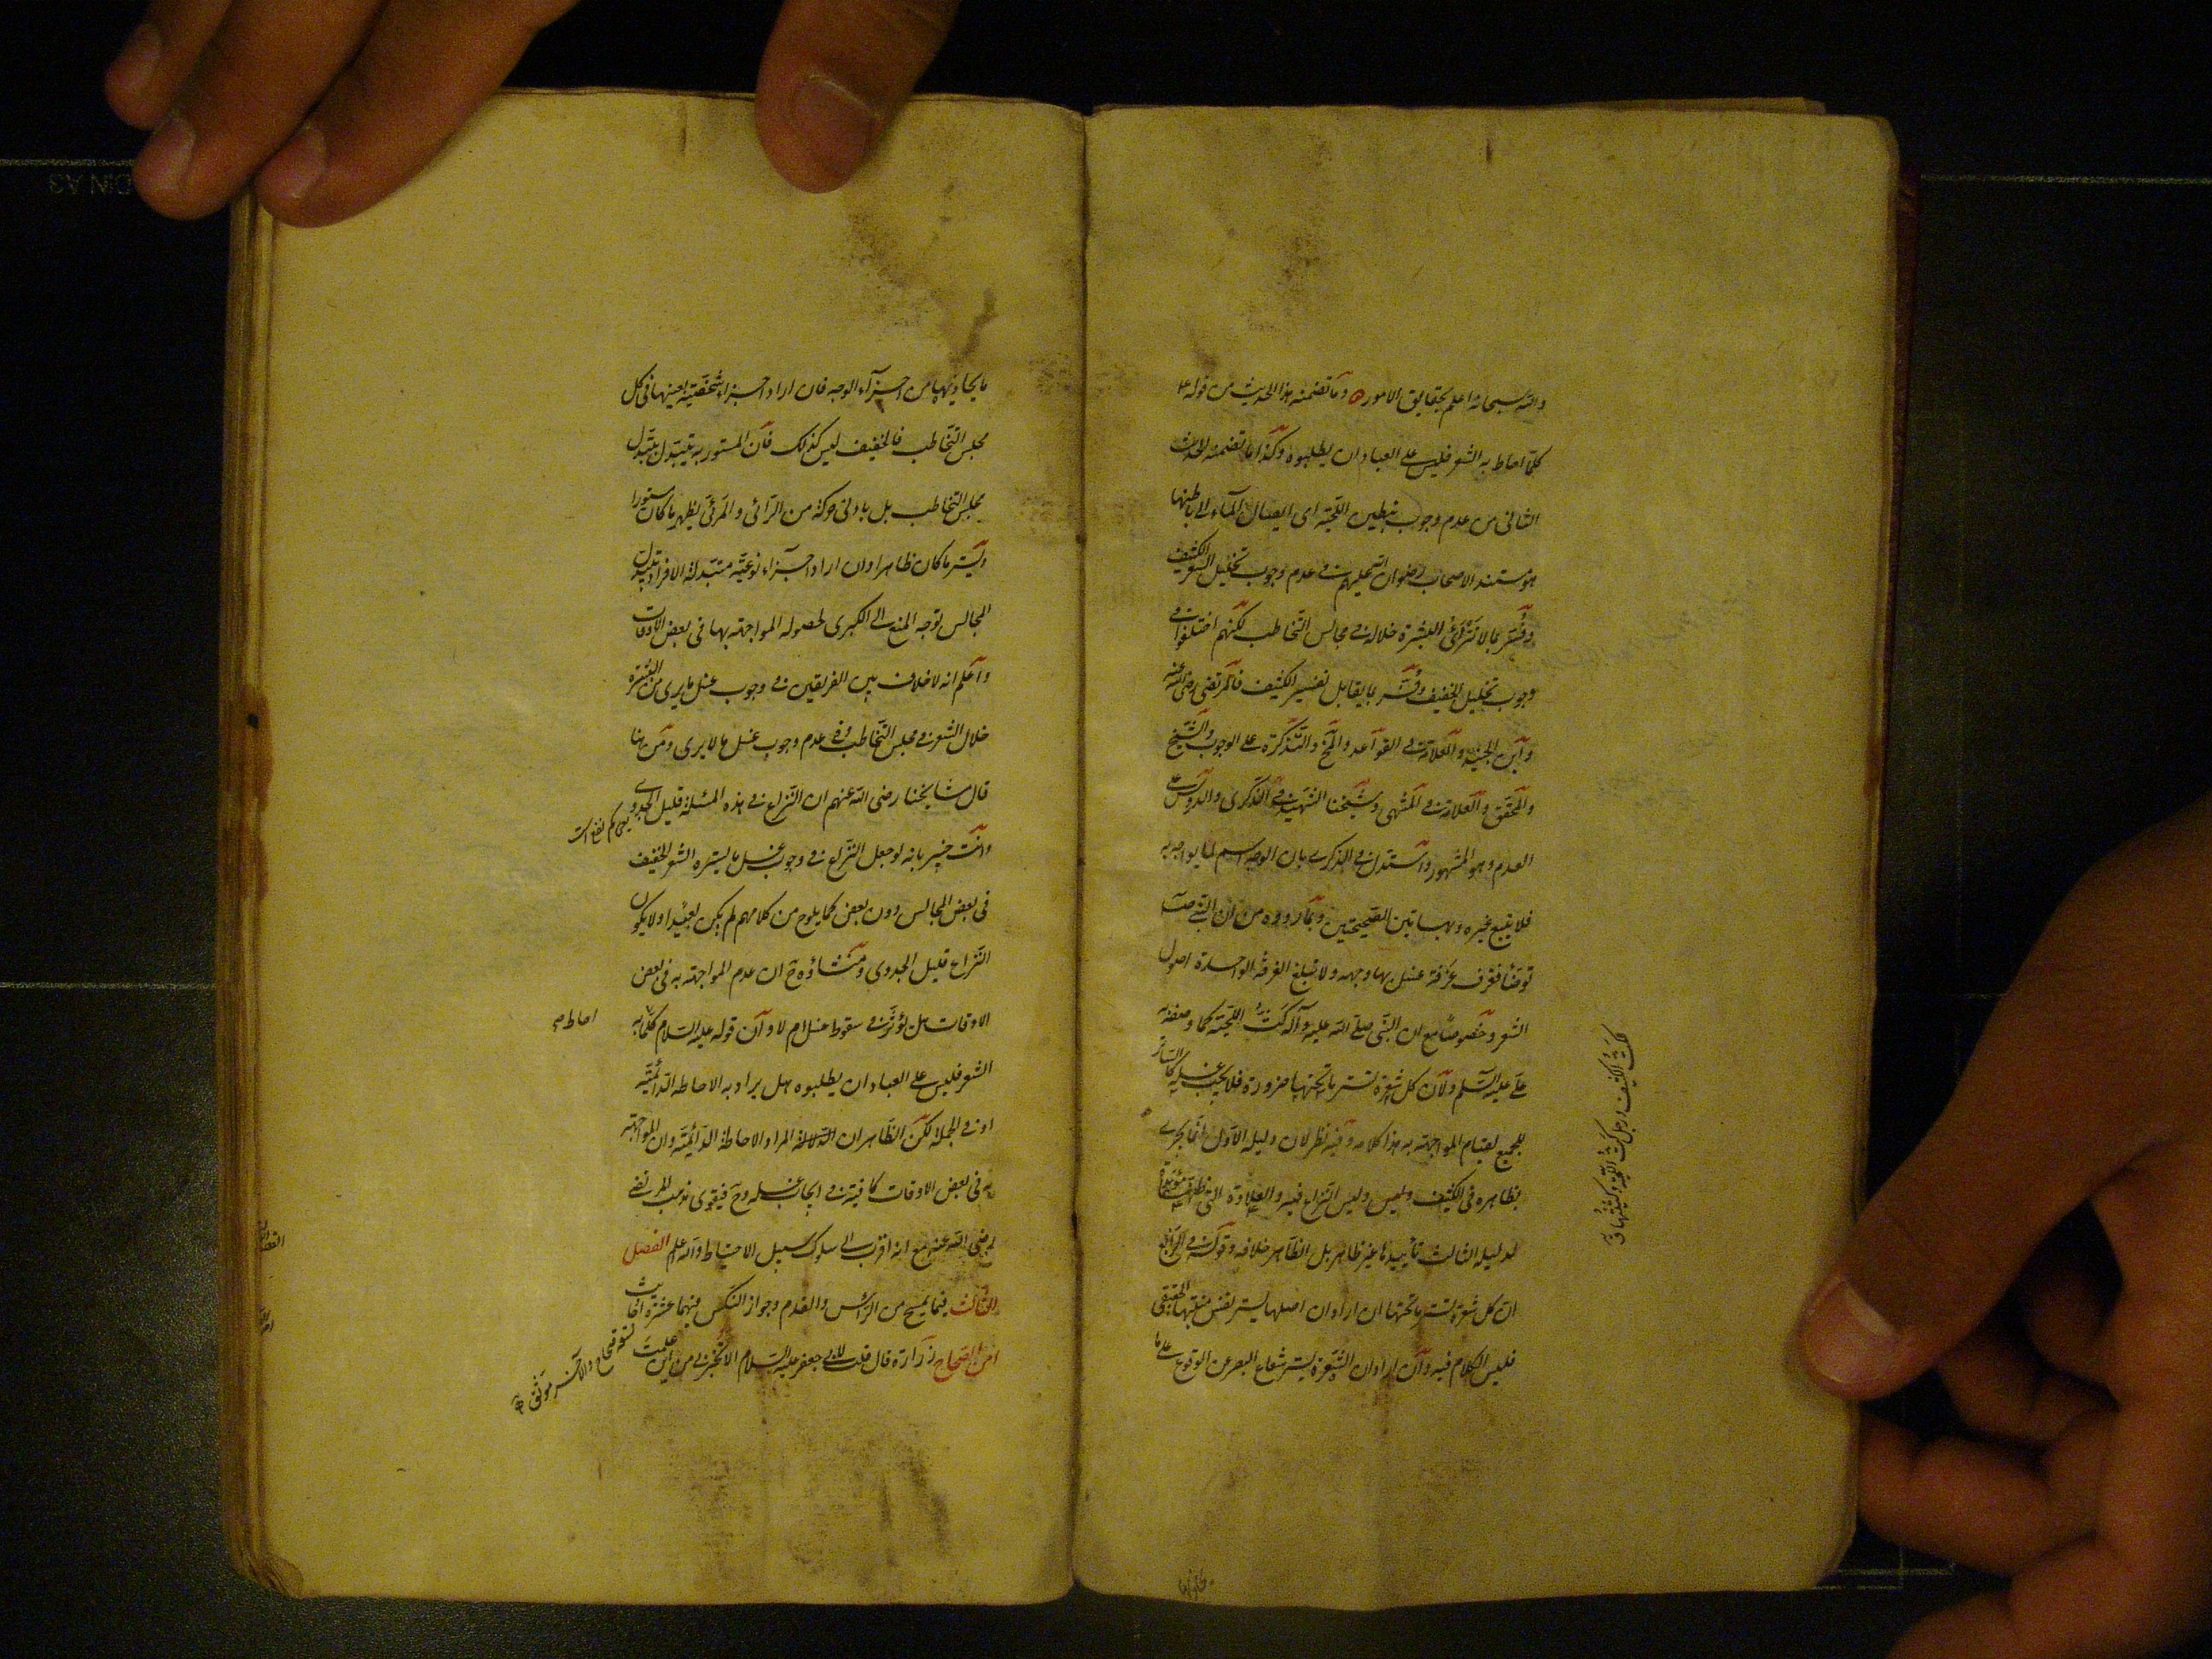 والله سبحانه اعلم بحقايق الامور ه وما تضمنه هذا الحديث من قوله ع
كلما احاط به الشعر فليس على العباد ان يطلبوه وكذا ما تضمنه الحديث
الثاني من عدم وجوب تبطين اللحية اى ايصال الماء الى باطنها
هو مستند الاصحاب رضوان الله عليهم فى عدم وجوب تخليل الشعر الكثيف
وفسّر بما لا تتراءى البشرة خلاله فى مجالس التخاطب لكنهم اختلفوا فى
وجوب تخليل الخفيف وفسّر بما يقابل تفسير الكثيف فالمرتضى رضى الله عنه
وابن الجنيد والعلامة فى القواعد والمخ والتذكرة على الوجوب والشيخ
والمحقق والعلامة فى المنتهى وشيخنا الشهيد فى الذكرى والدروس على
العدم وهو المشهور واستدل فى الذكرى بان الوجه اسم لما يواجه به
فلا يتبع غيره وبهاتين الصحيحتين وبما رووه من ان النبي ص
توضأ فغرف غرفة غسل بها وجهه ولا تبلغ الغرفة الواحدة اصول
الشعر وخصوصا مع ان النبي صلى الله عليه وآله كث اللحية كما وصفه به
على عليه السلم ولان كل شعرة تستر ما تحتها ضرورة فلا يجب غسله كالساتر
للجميع لقيام المواجهة به هذا كلامه وفيه نظر لان دليله الاول انما يجرى
بظاهره فى الكثيف وليس النزاع فيه والعلاوة التى
لدليله الثالث تأييدها غير ظاهر بل الظاهر خلافه وقوله فى الرابع
ان كل شعرة تستر ما تحتها ان اراد ان اصلها يستر نفس منبتها الحقيقى
فليس الكلام فيه وان اراد ان الشعرة يستر شعاع البصر عن الوقوع على ما
كث الكثيف ورجل كث اللحية
ما يحاذيها من اجزاء الوجه فان اراد اجزاء شخصية بعينها فى كل
مجلس التخاطب فالخفيف ليس كذلك فان المستور به يتبدل بتبدل
مجلس التخاطب بل بادنى حركة من الرائى والمرئى يظهر ما كان مستورا
ويستر ما كان ظاهرا وان اراد اجزاء نوعية متبدلة الافراد بتبدل
المجالس توجه المنع الى الكبرى لحصوله المواجهة بها فى بعض الاوقات
واعلم انه لا خلاف بين الفريقين فى وجوب غسل ما يرى من البشرة
خلال الشعر فى مجلس التخاطب وفى عدم وجوب غسل ما لا يرى ومن هنا
قال مشايخنا رضى الله عنهم ان النزاع فى هذه المسئلة قليل الجدوى
وانت خبير بانه لو جعل النزاع فى وجوب غسل ما يستره الشعر الخفيف
فى بعض المجالس دون بعض كما يلوح من كلامهم لم يكن بعيدا ولا يكون
النزاع قليل الجدوى ومنشاؤه ح ان عدم المواجهة به فى بعض
الاوقات هل يؤثر فى سقوط غسله ام لا وان قوله عليه السلام كلما به
احاط صح
الشعر فليس على العباد ان يطلبوه هل يراد به الاحاطه الدائمية
او فى الجملة لكن الظاهر ان المراد الاحاطة الدائمية وان المواجهة
به فى بعض الاوقات كافية فى ايجاب غسله وح فيقوى مذهب المرتضى
رضى الله عنه مع انه اقرب الى سلوك سبيل الاحتياط والله اعلم الفصل
الثالث فيما يمسح من الرأس والقدم وجواز النكس فيهما عشرة احاديث
من الصحاح زرارة قال قلت لابى جعفر عليه السلام الا تخبرنى من اين علمت
تسعة صحاح والآخر موثق